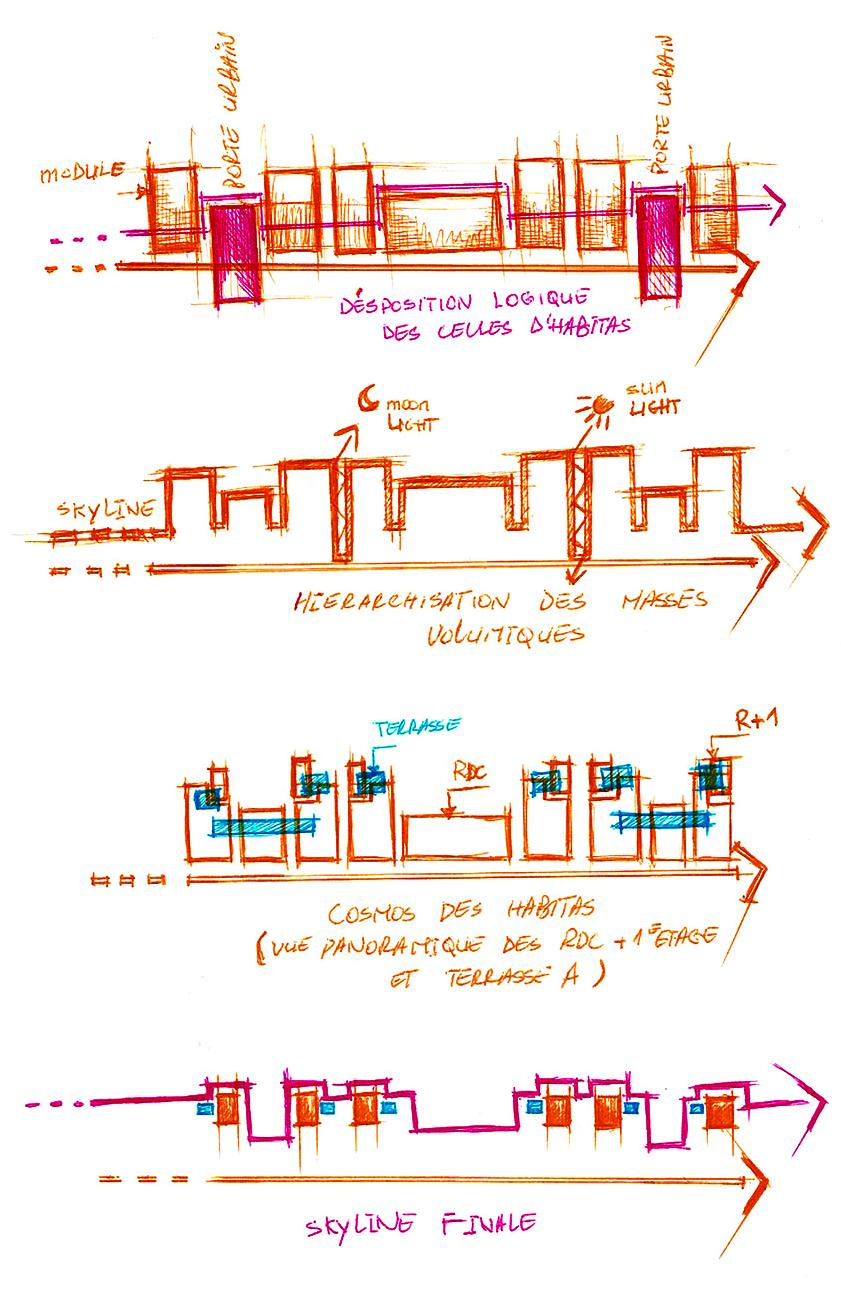 PORTE URBAIN
PORTE URBAIN
MODULE
DÉSPOSITION LOGIQUE
DES CELLES D'HABITAS
moon
LIGHT
sun
LIGHT
SKYLINE
HIERARCHISATION DES MASSES
VOLUMIQUES
TERRASSE
R+1
RDC
COSMOS DES HABITAS
(VUE PANORAMIQUE DES RDC +1E ETAGE
ET TERRASSE A)
SKYLINE FINALE